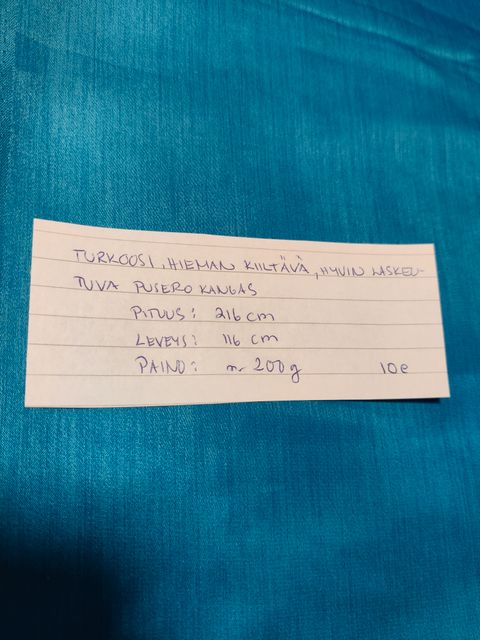 TURKOOSI, HIEMAN KIILTÄVÄ, HYVIN LASKEU-
TUVA PUSERO KANGAS
PITUUS: 216 cm
LEVEYS: 116 cm
PAINO: n. 200g 10e